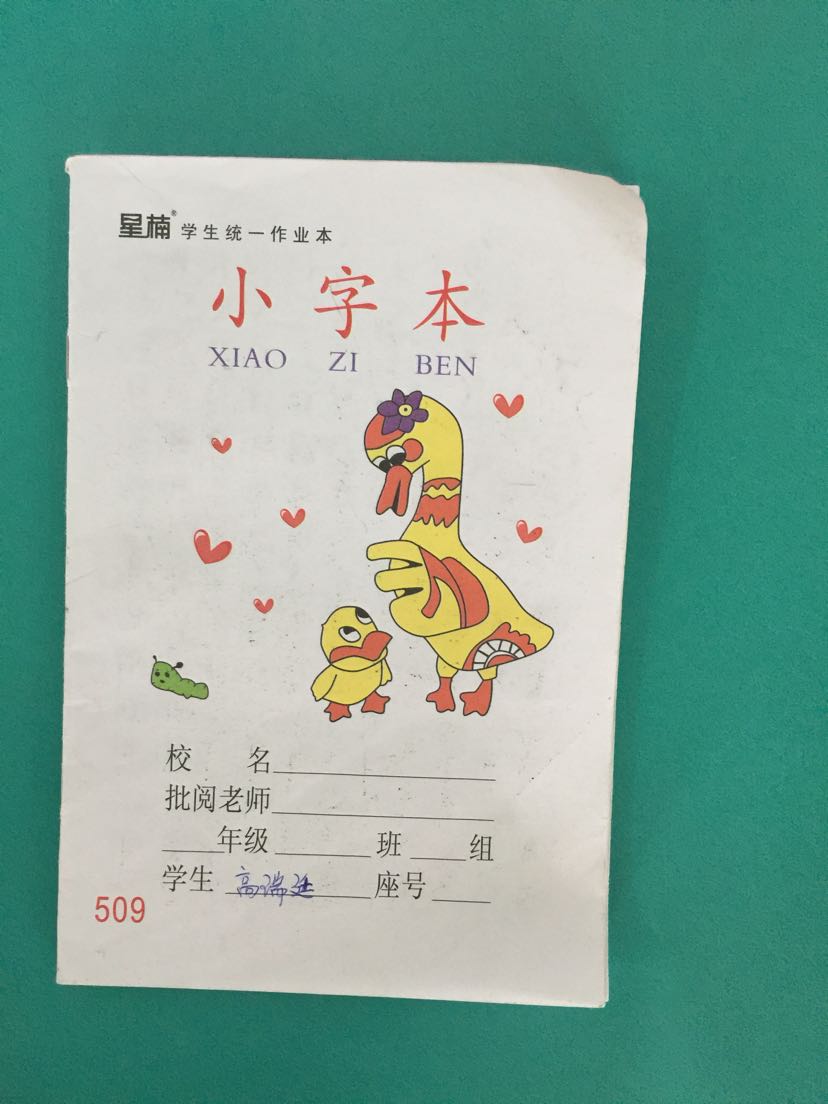 星楠® 学生统一作业本
小字本
XIAO ZI BEN
校 名
批阅老师
年级 班 组
学生 高瑞廷 座号
509